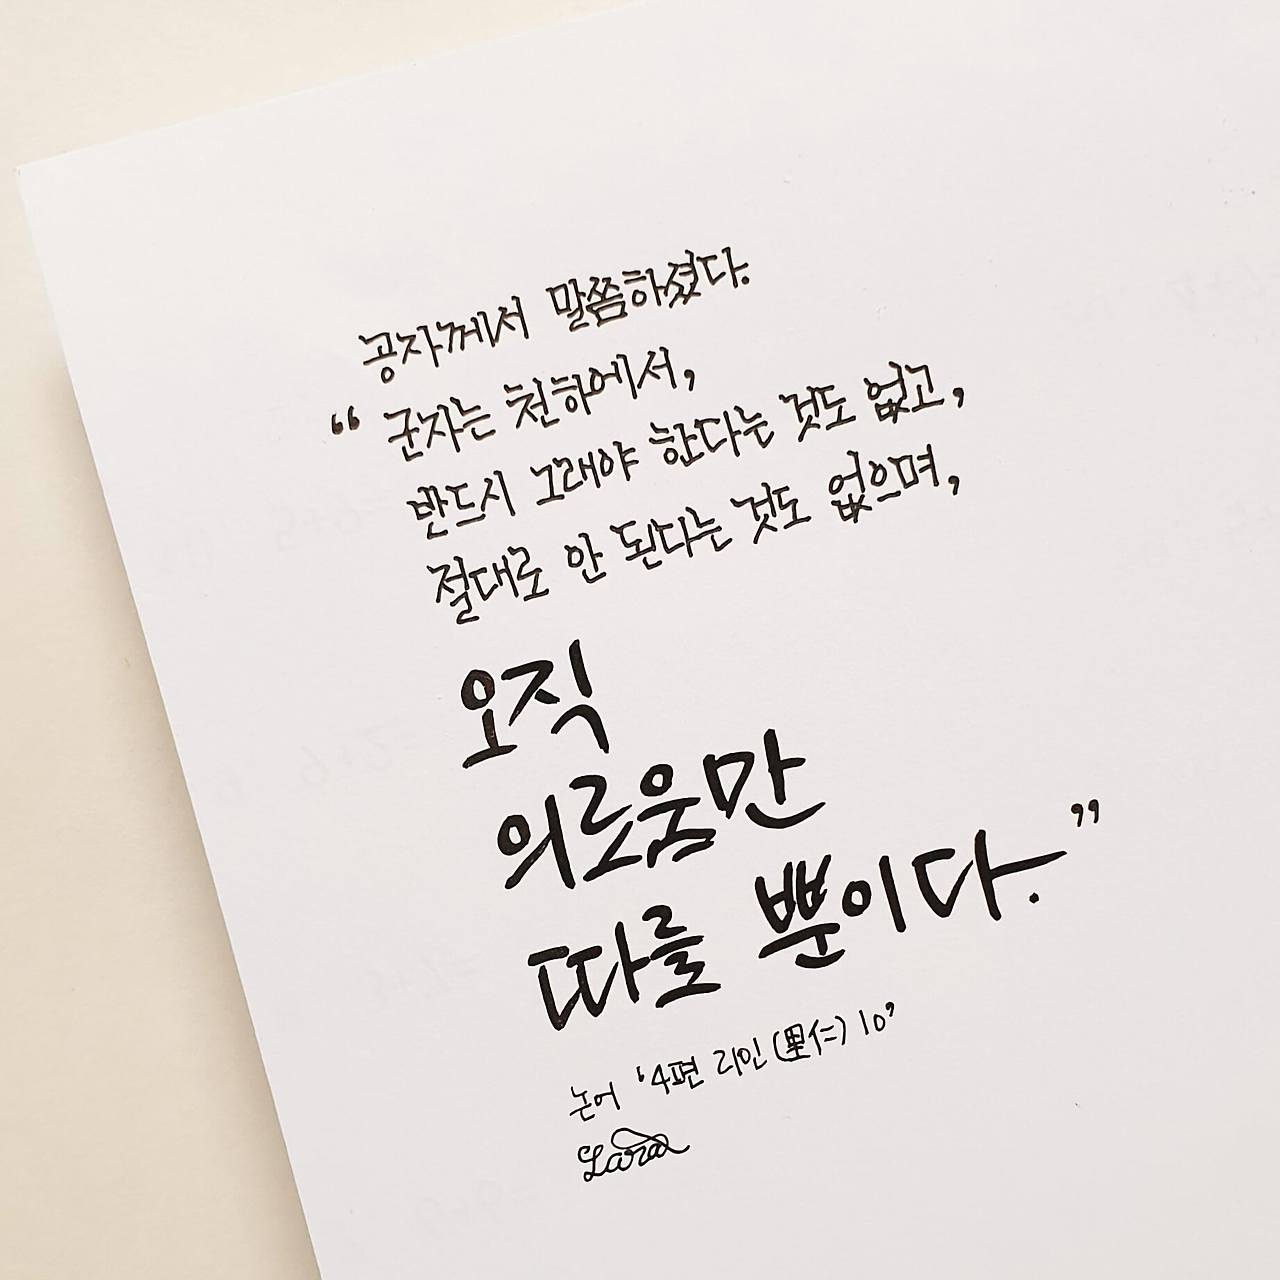 공자께서 말씀하셨다.
“ 군자는 천하에서,
반드시 그래야 한다는 것도 없고,
절대로 안 된다는 것도 없으며,
오직
의로움만
따를 뿐이다. ”
논어 ‘4편 리인(里仁) 10’
Lara